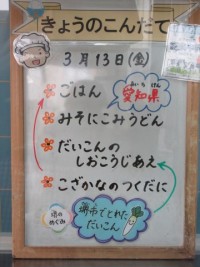 きょうのこんだて
3月13日(金)
ごはん
あいちけん
愛知県
みそにこみうどん
だいこんの
しおこうじあえ
こざかなのつくだに
海の
めぐみ
堺市でとれた
だいこん